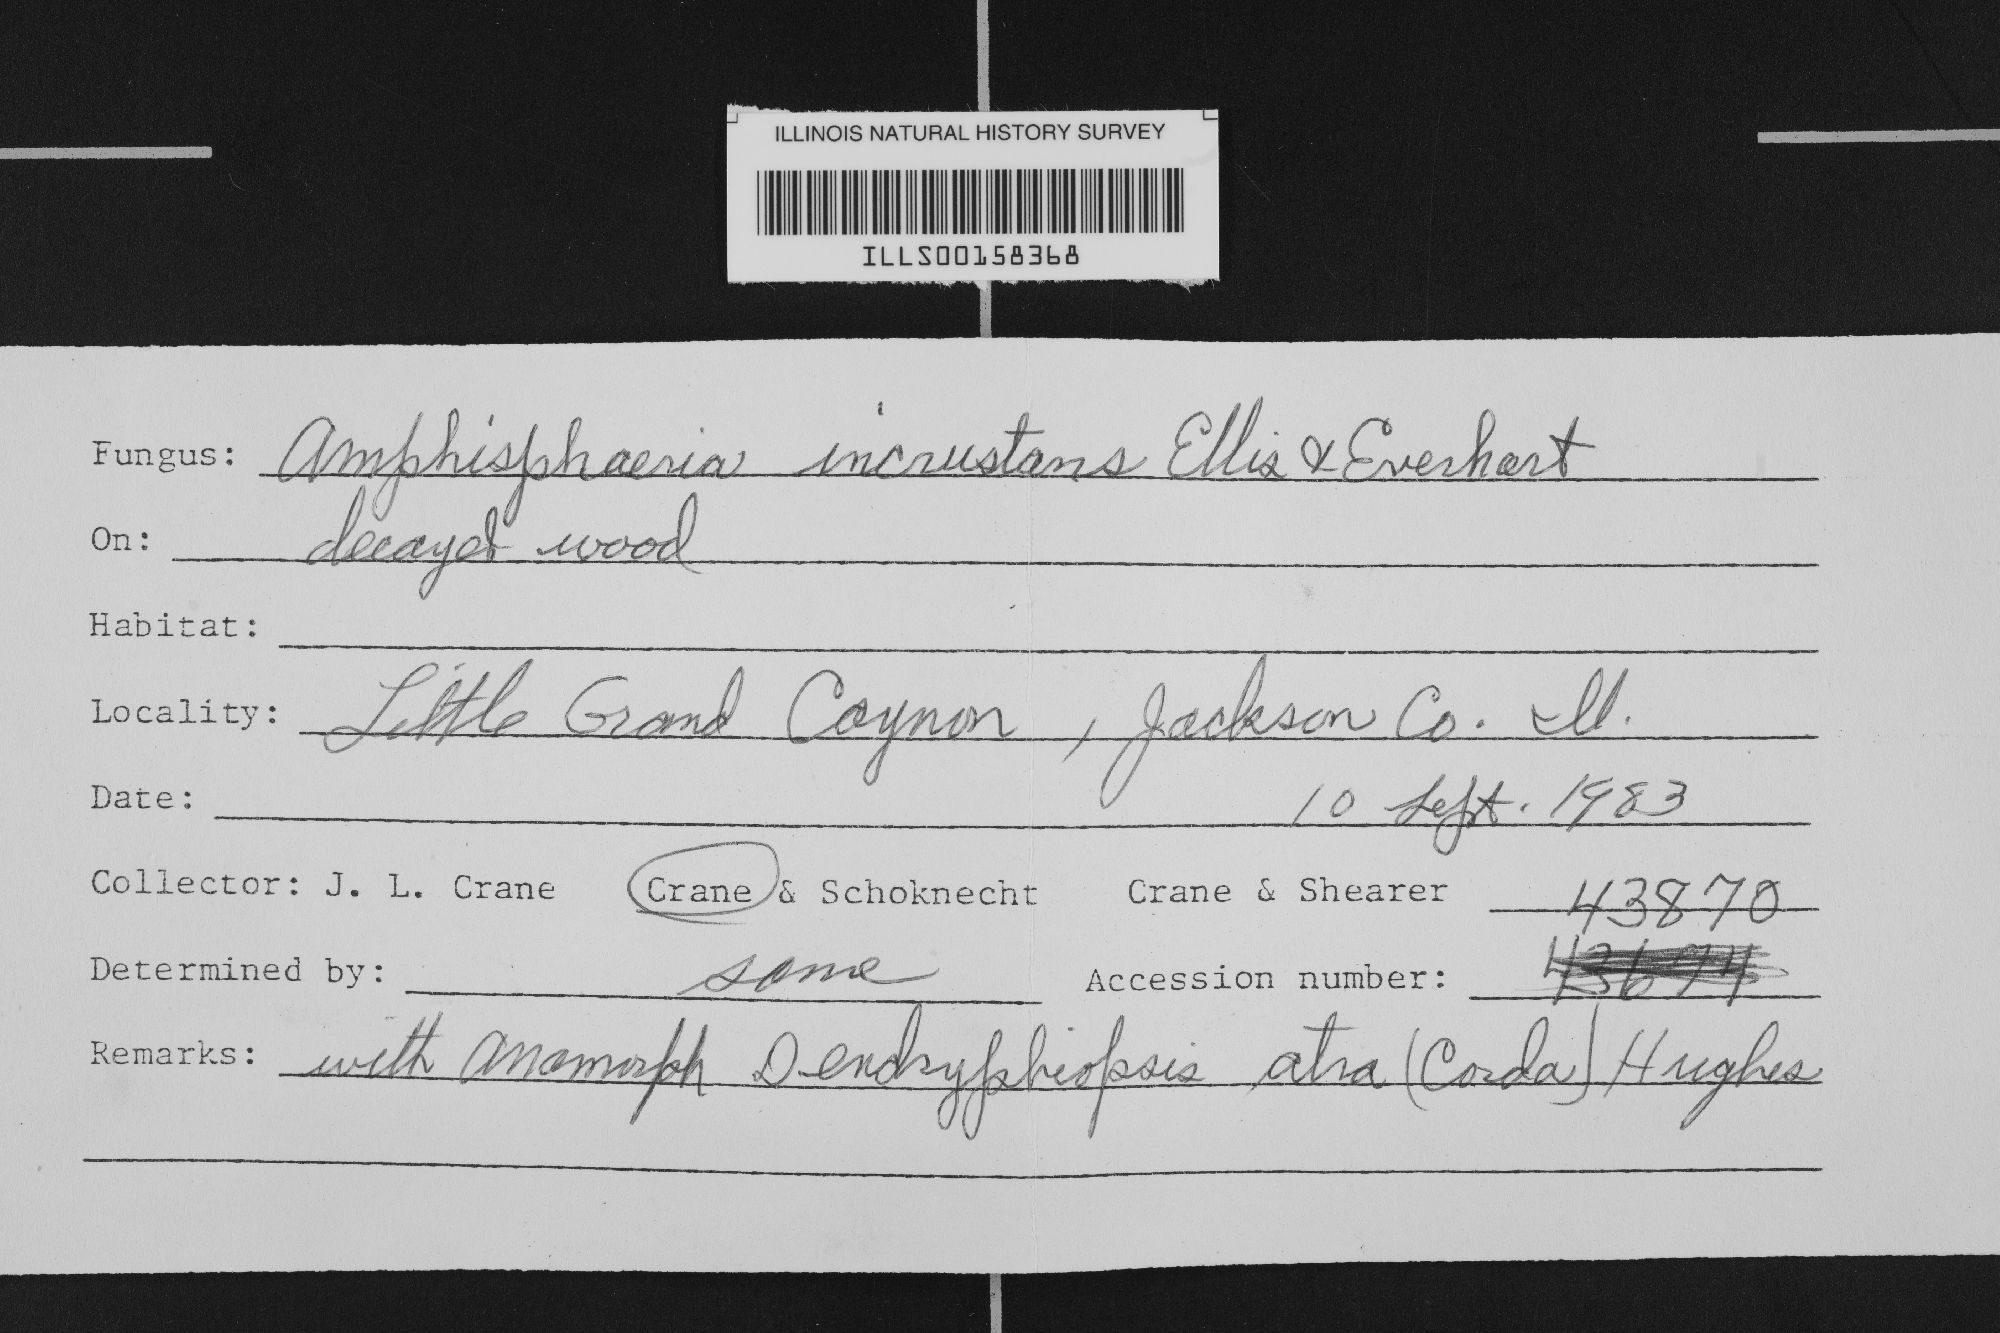 ILLINOIS NATURAL HISTORY SURVEY
ILLS00158368
Fungus: Amphisphaeria incrustans Ellis & Everhart
On: decayed wood
Habitat:
Locality: Little Grand Coynon, Jackson Co. Ill.
Date: 10 Sept. 1983
Collector: J. L. Crane Crane & Schoknecht Crane & Shearer 43870
Determined by: same Accession number:
Remarks: with anamorph Dendryphiopsis atra (Corda) Hughes